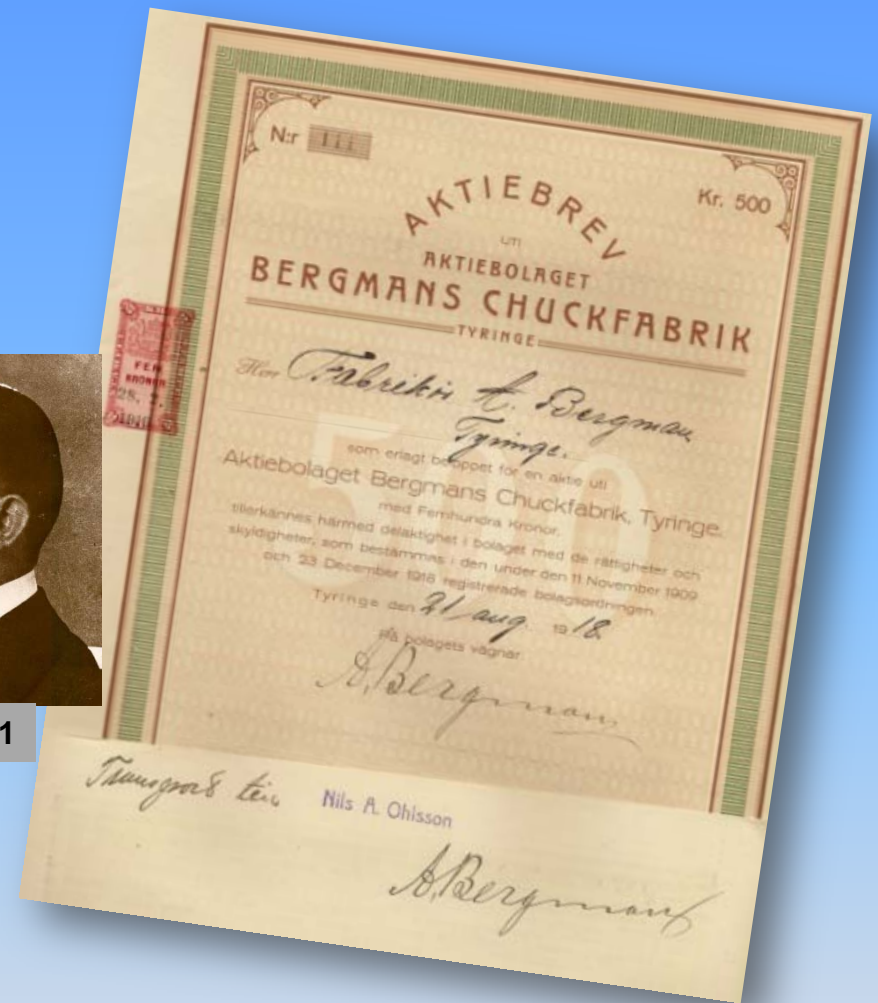 N:r 111
Kr. 500
AKTIEBREV
UTI
AKTIEBOLAGET
BERGMANS CHUCKFABRIK
TYRINGE
FEM
KRONOR
28. 2.
Herr Fabrikör A. Bergman
Tyringe.
500
som erlagt beloppet för en aktie uti
Aktiebolaget Bergmans Chuckfabrik, Tyringe.
med Femhundra Kronor,
tillerkännes härmed delaktighet i bolaget med de rättigheter och
skyldigheter, som bestämmas i den under den 11 November 1909
och 23 December 1916 registrerade bolagsordningen.
Tyringe den 21 aug. 1918
På bolagets vägnar:
A. Bergman
1
Transport till Nils A. Ohlsson
A. Bergman